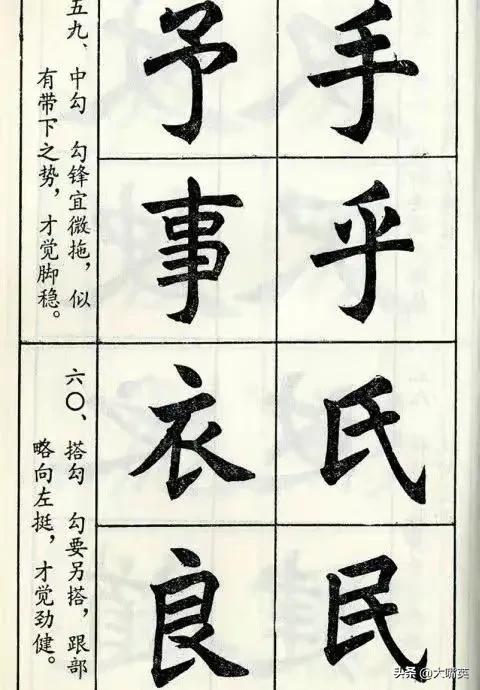 五九、中勾 勾锋宜微拖，似
有带下之势，才觉脚稳。
手予
乎事
六〇、搭勾 勾要另搭，跟部
略向左挺，才觉劲健。
氏衣
民良
头条 @大嘴英